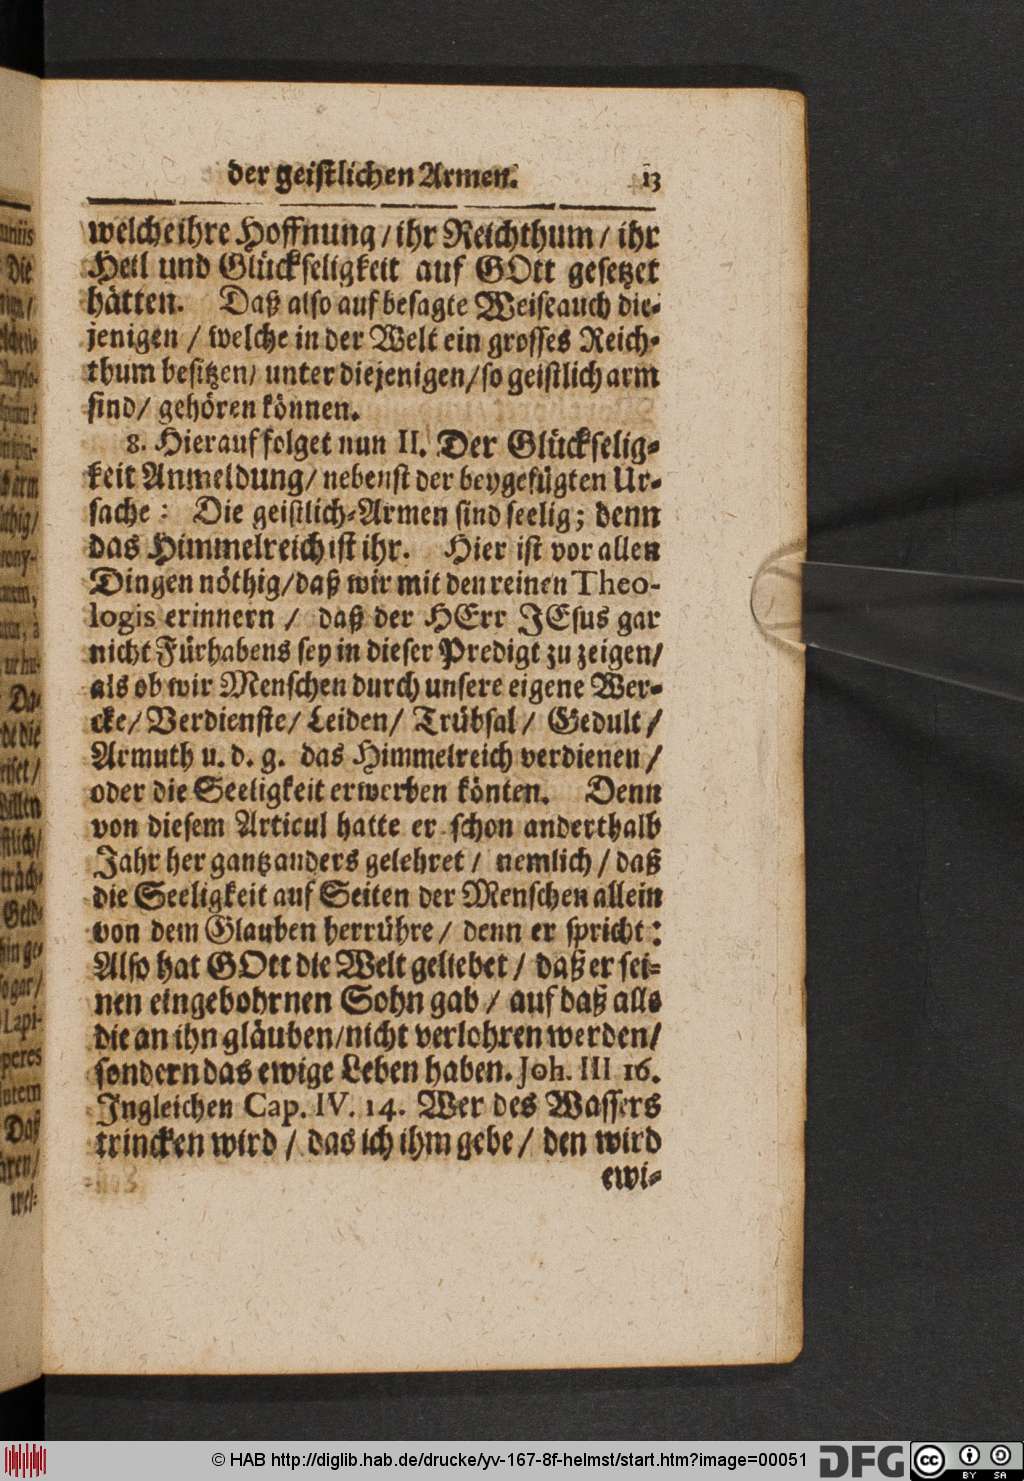 der geistlichen Armen. 13
welche ihre Hoffnung / ihr Reichthum / ihr
Heil und Glückseligkeit auf GOtt gesetzet
hätten. Daß also auf besagte Weise auch die-
jenigen / welche in der Welt ein grosses Reich-
thum besitzen / unter diejenigen / so geistlich arm
sind / gehören können.
8. Hierauf folget nun II. Der Glückselig-
keit Anmeldung / nebenst der beygefügten Ur-
sache: Die geistlich-Armen sind seelig; denn
das Himmelreich ist ihr. Hier ist vor allen
Dingen nöthig / daß wir mit den reinen Theo-
logis erinnern / daß der HErr JEsus gar
nicht Fürhabens sey in dieser Predigt zu zeigen /
als ob wir Menschen durch unsere eigene Wer-
cke / Verdienste / Leiden / Trübsal / Gedult /
Armuth u. d. g. das Himmelreich verdienen /
oder die Seeligkeit erwerben könten. Denn
von diesem Articul hatte er schon anderthalb
Jahr her gantz anders gelehret / nemlich / daß
die Seeligkeit auf Seiten der Menschen allein
von dem Glauben herrühre / denn er spricht:
Also hat GOtt die Welt geliebet / daß er sei-
nen eingebohrnen Sohn gab / auf daß alle
die an ihn gläuben / nicht verlohren werden /
sondern das ewige Leben haben. Joh. III 16.
Ingleichen Cap. IV. 14. Wer des Wassers
trincken wird / das ich ihm gebe / den wird
ewi-
© HAB http://diglib.hab.de/drucke/yv-167-8f-helmst/start.htm?image=00051
DFG
cc
BY SA